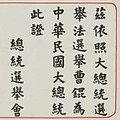 茲依照大總統選
舉法選舉曹錕為
中華民國大總統
此證
總統選舉會